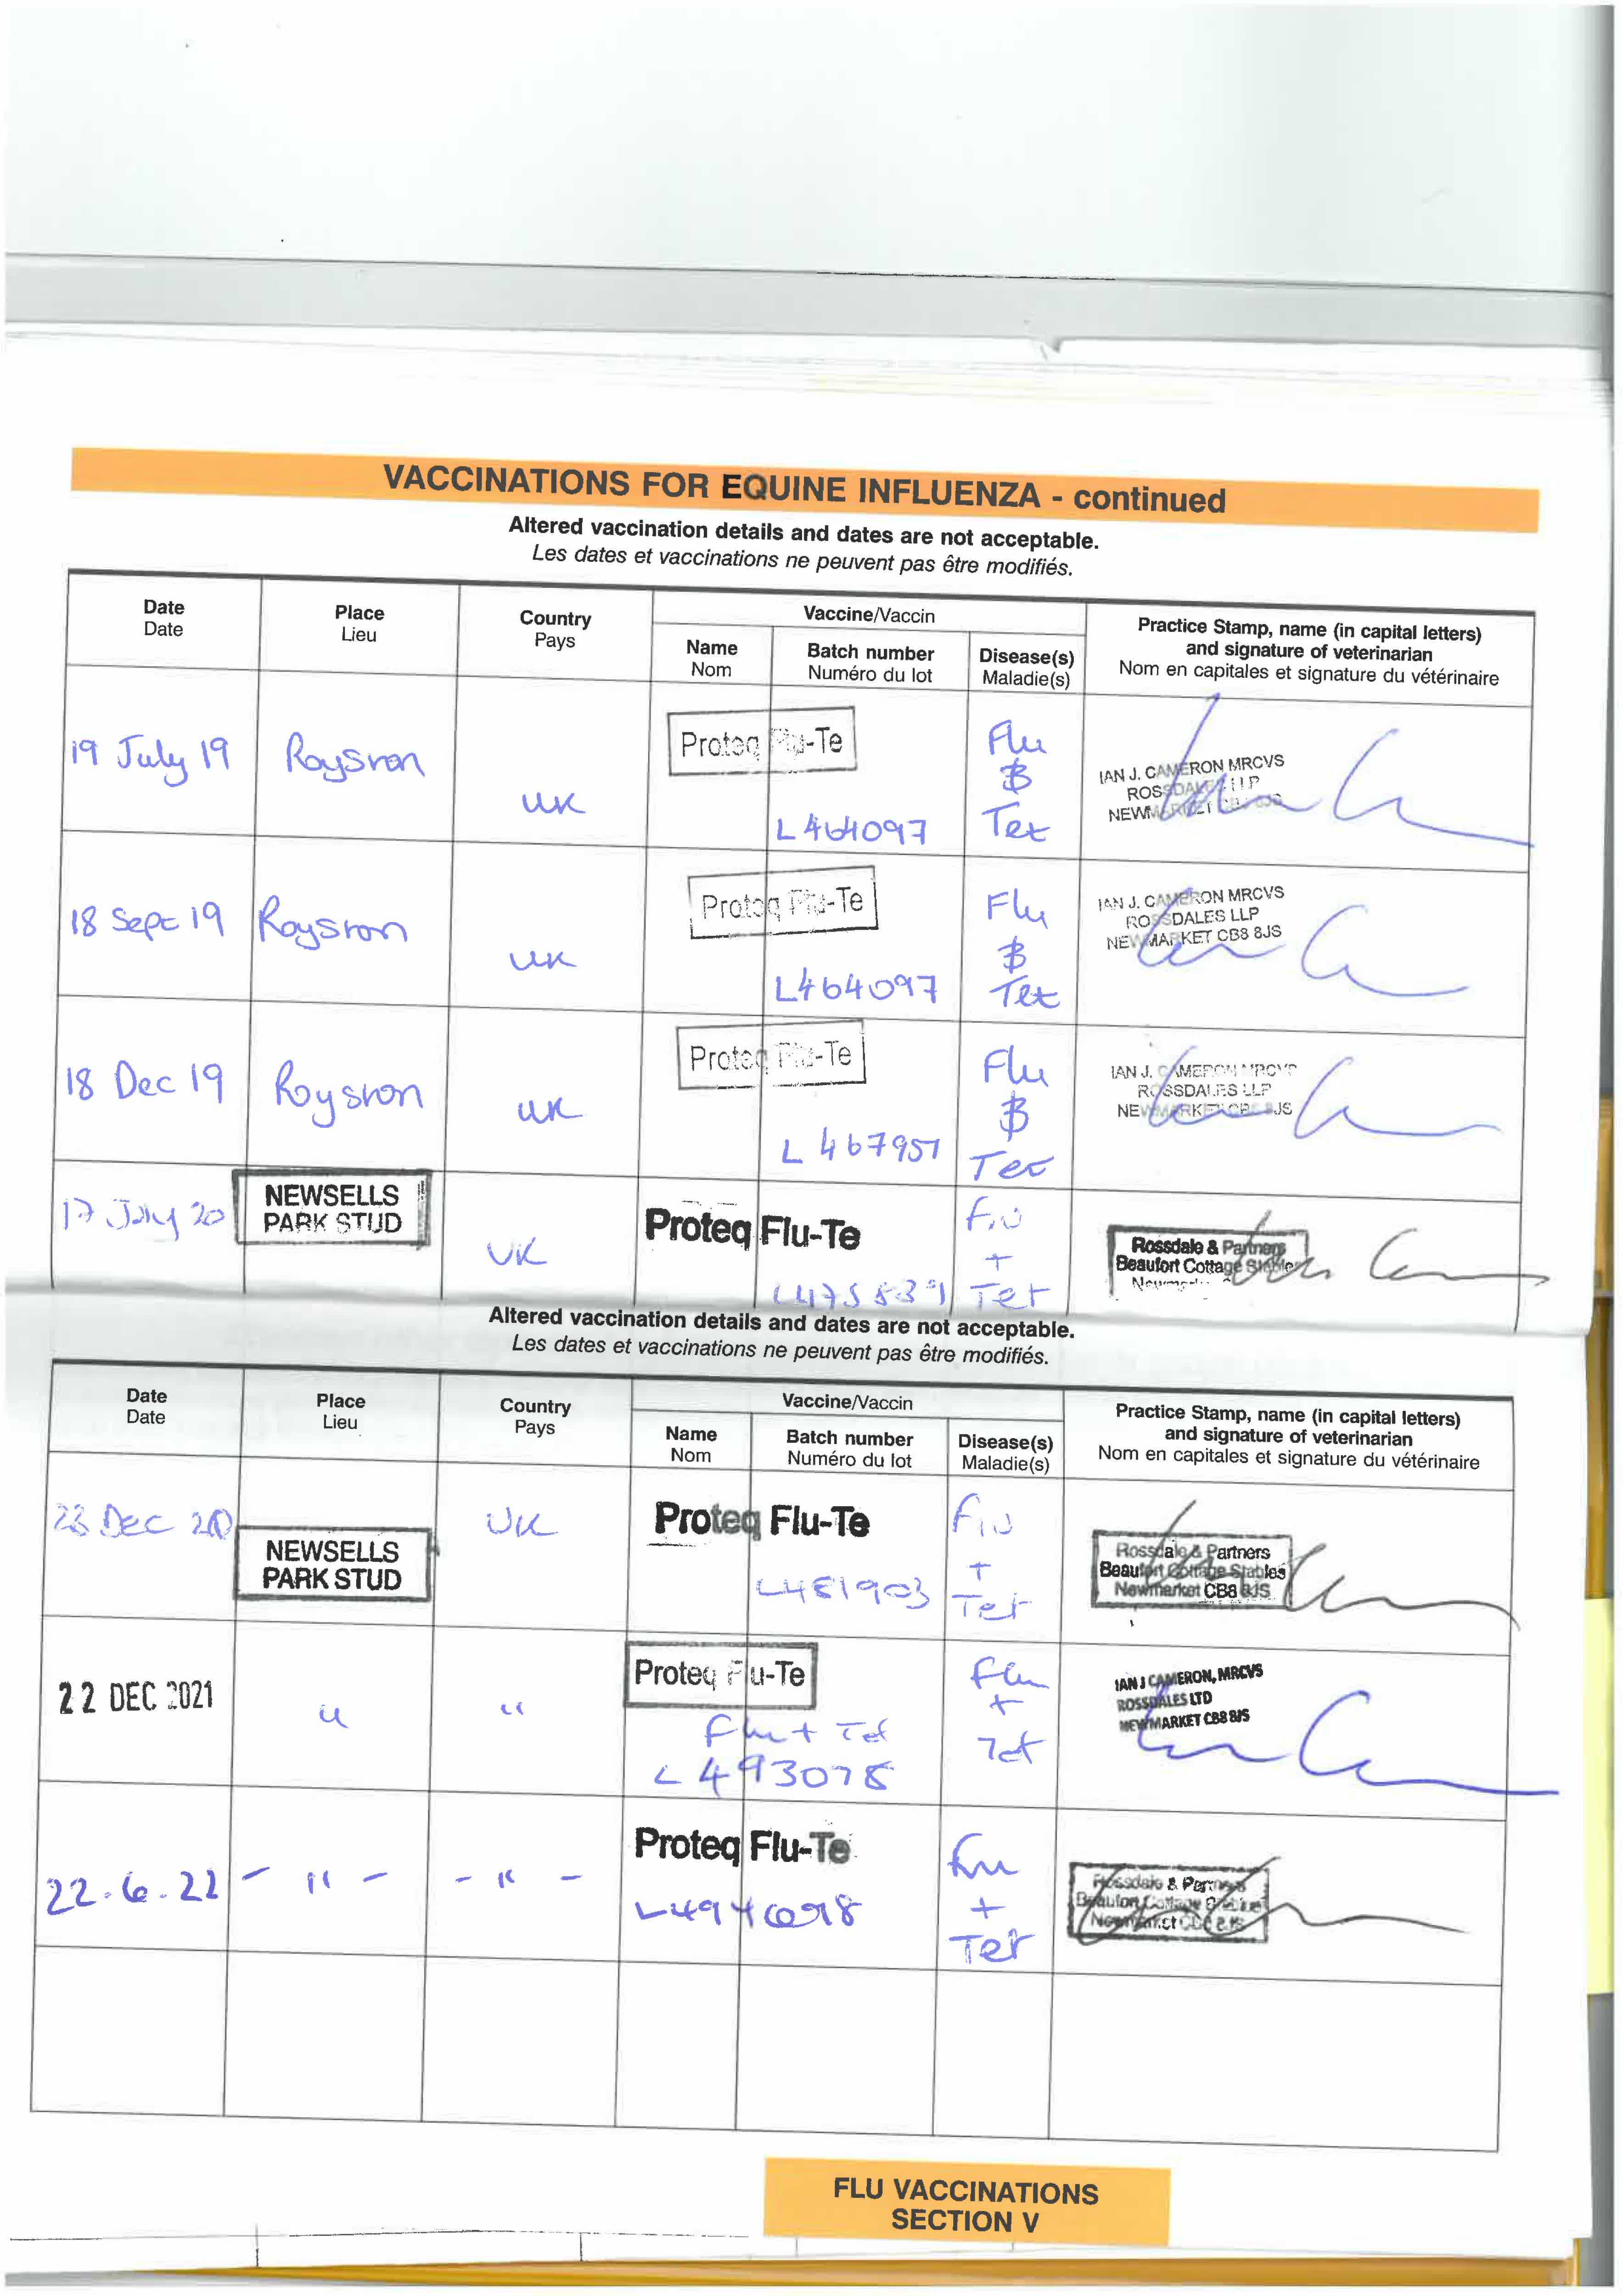 VACCINATIONS FOR EQUINE INFLUENZA - continued
Altered vaccination details and dates are not acceptable.
Les dates et vaccinations ne peuvent pas être modifiés.
Date
Date
Place
Lieu
Country
Pays
Vaccine/Vaccin
Name
Nom
Batch number
Numéro du lot
Disease(s)
Maladie(s)
Practice Stamp, name (in capital letters)
and signature of veterinarian
Nom en capitales et signature du vétérinaire
19 July 19
Royston
UK
Proteq Flu-Te
L464097
Flu
&
Tet
IAN J. CAMERON MRCVS
ROSSDALES LLP
NEWMARKET CB8 8JS
18 Sept 19
Royston
UK
Proteq Flu-Te
L464097
Flu
&
Tet
IAN J. CAMERON MRCVS
ROSSDALES LLP
NEWMARKET CB8 8JS
18 Dec 19
Royston
UK
Proteq Flu-Te
L467951
Flu
&
Tet
IAN J. CAMERON MRCVS
ROSSDALES LLP
NEWMARKET CB8 8JS
17 July 20
NEWSELLS
PARK STUD
UK
Proteq Flu-Te
Flu
+
Tet
Rossdale & Partners
Beaufort Cottage Stables
Altered vaccination details and dates are not acceptable.
Les dates et vaccinations ne peuvent pas être modifiés.
Date
Date
Place
Lieu
Country
Pays
Vaccine/Vaccin
Name
Nom
Batch number
Numéro du lot
Disease(s)
Maladie(s)
Practice Stamp, name (in capital letters)
and signature of veterinarian
Nom en capitales et signature du vétérinaire
Dec 20
NEWSELLS
PARK STUD
UK
Proteq Flu-Te
L481903
Flu
+
Tet
Rossdale & Partners
Beaufort Cottage Stables
Newmarket CB8 8JS
22 DEC 2021
"
"
Proteq Flu-Te
Flu + Tet
L493078
Flu
+
Tet
IAN J CAMERON, MRCVS
ROSSDALES LTD
NEWMARKET CB8 8JS
22.6.22
- " -
- " -
Proteq Flu-Te
Flu
+
Tet
Rossdale & Partners
Beaufort Cottage Stables
Newmarket CB8 8JS
FLU VACCINATIONS
SECTION V